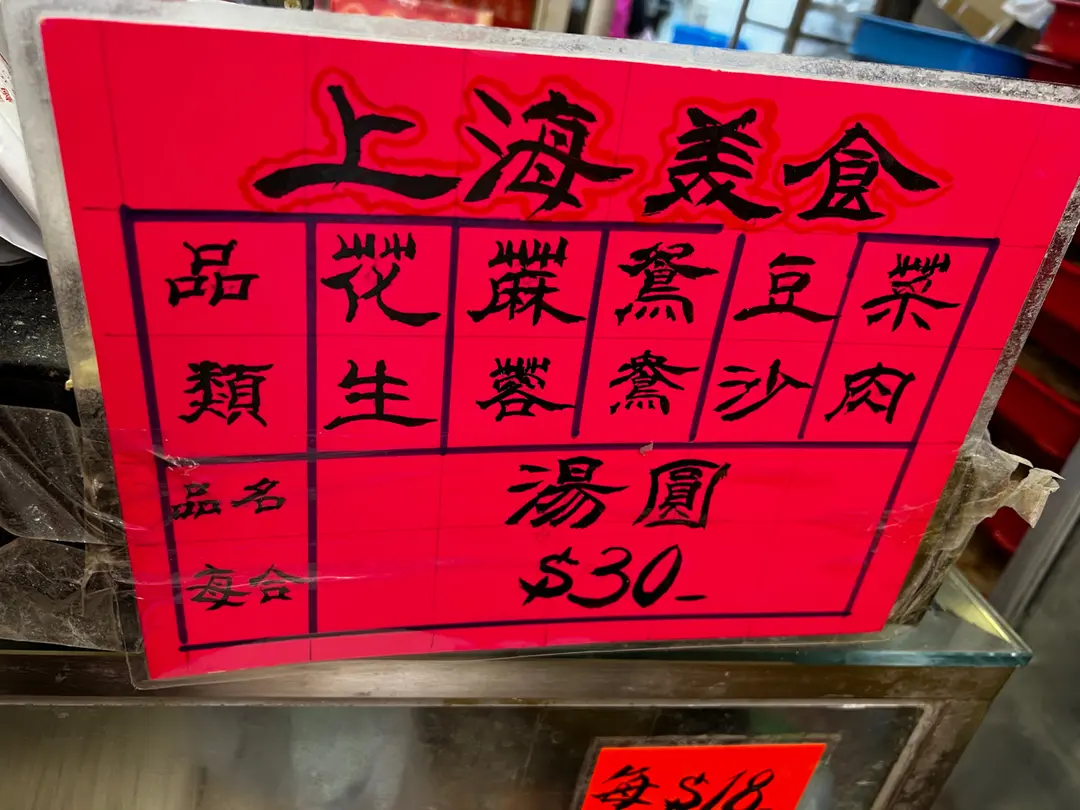 上海美食
品類
花生
蔴蓉
鴛鴦
豆沙
菜肉
品名 湯圓
每合 $30_
每 $18